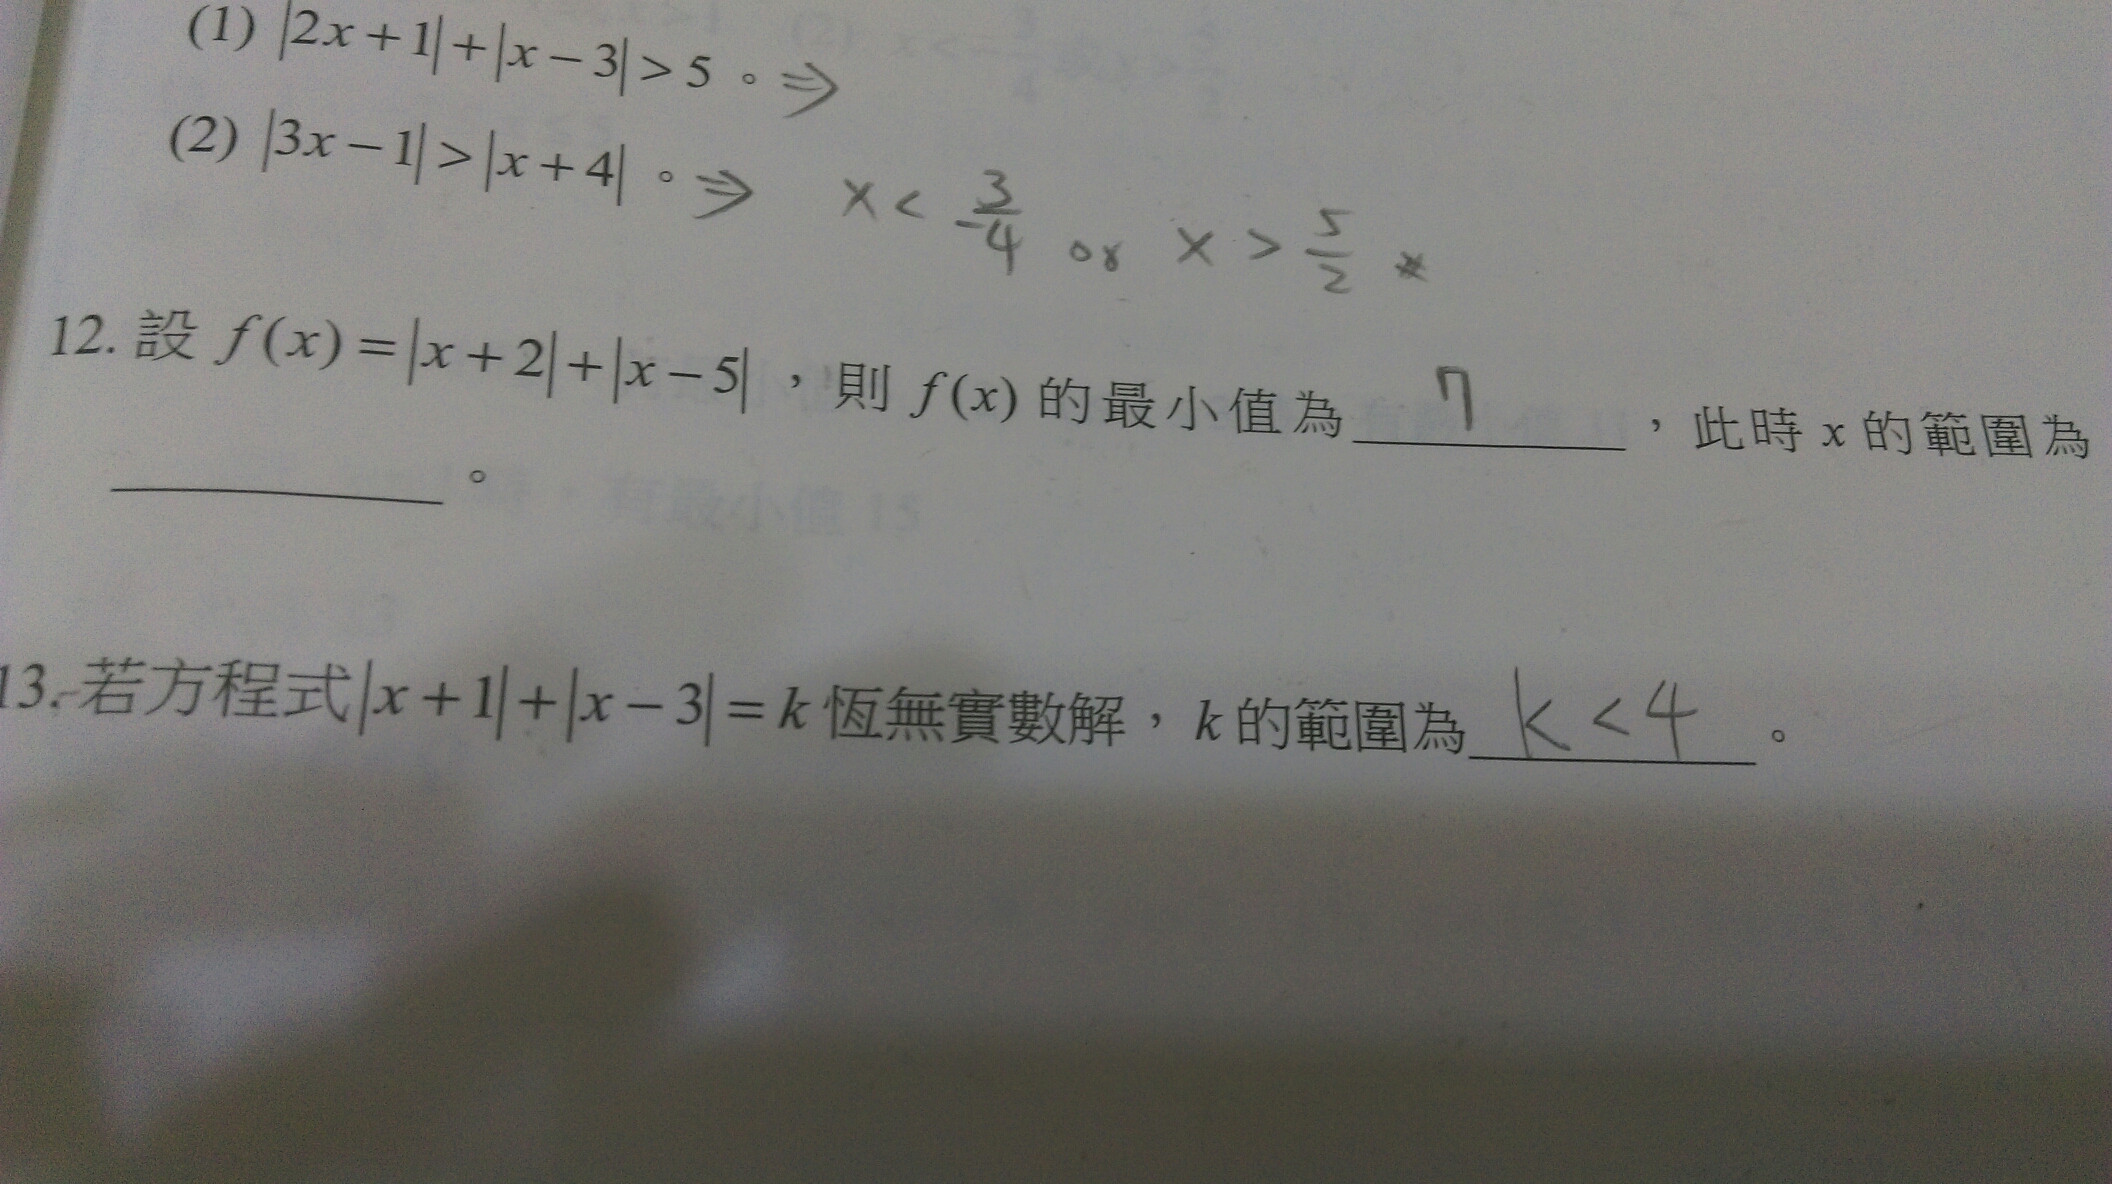 (1) |2x+1|+|x-3|>5。⇒
(2) |3x-1|>|x+4|。⇒ x < 3/-4 or x > 5/2 *
12. 設 f(x)=|x+2|+|x-5|，則 f(x) 的最小值為 7 ，此時 x 的範圍為
。
13. 若方程式|x+1|+|x-3|=k 恆無實數解，k 的範圍為 k<4 。